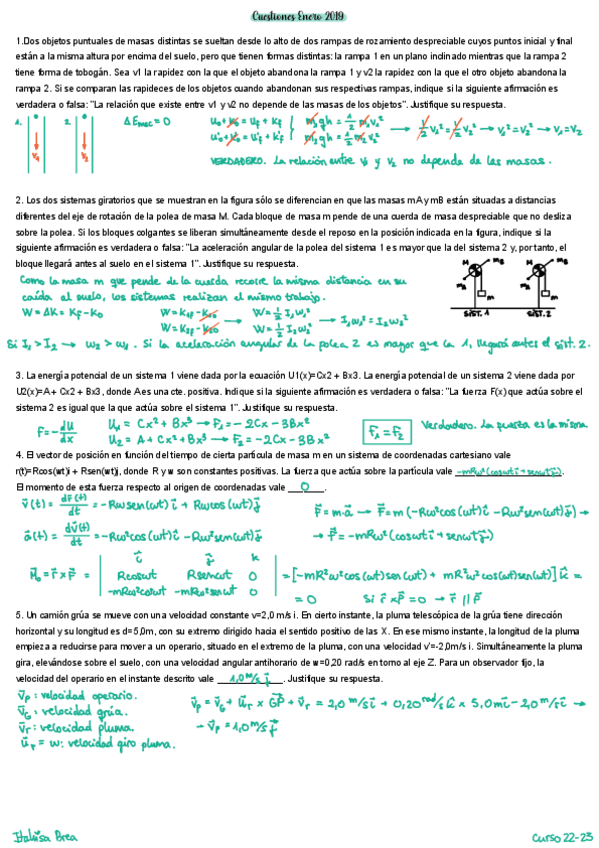 Cuestiones Enero 2019
1.Dos objetos puntuales de masas distintas se sueltan desde lo alto de dos rampas de rozamiento despreciable cuyos puntos inicial y final
están a la misma altura por encima del suelo, pero que tienen formas distintas: la rampa 1 en un plano inclinado mientras que la rampa 2
tiene forma de tobogán. Sea v1 la rapidez con la que el objeto abandona la rampa 1 y v2 la rapidez con la que el otro objeto abandona la
rampa 2. Si se comparan las rapideces de los objetos cuando abandonan sus respectivas rampas, indique si la siguiente afirmación es
verdadera o falsa: "La relación que existe entre v1 y v2 no depende de las masas de los objetos". Justifique su respuesta.
1. 2. ΔEmec = 0 U₀ + K₀ = Uf + Kf m₁gh = 1/2 m₁v₁² → 1/2 v₁² = 1/2 v₂² → v₁² = v₂² → v₁ = v₂
v₁ v₂ U₀' + K₀' = Uf' + Kf' m₂gh = 1/2 m₂v₂²
VERDADERO. La relación entre v₁ y v₂ no depende de las masas.
2. Los dos sistemas giratorios que se muestran en la figura sólo se diferencian en que las masas mA y mB están situadas a distancias
diferentes del eje de rotación de la polea de masa M. Cada bloque de masa m pende de una cuerda de masa despreciable que no desliza
sobre la polea. Si los bloques colgantes se liberan simultáneamente desde el reposo en la posición indicada en la figura, indique si la
siguiente afirmación es verdadera o falsa: "La aceleración angular de la polea del sistema 1 es mayor que la del sistema 2 y, por tanto, el
bloque llegará antes al suelo en el sistema 1". Justifique su respuesta.
Como la masa m que pende de la cuerda recorre la misma distancia en su
caída al suelo, los sistemas realizan el mismo trabajo.
W = ΔK = Kf - K₀ W = K₁f - K₁₀ → W = 1/2 I₁w₁² → I₁w₁² = I₂w₂²
W = K₂f - K₂₀ W = 1/2 I₂w₂²
M mB mA m SIST. 1 M mB mA m SIST. 2
Si I₁ > I₂ → w₂ > w₁. Si la aceleración angular de la polea 2 es mayor que la 1, llegará antes el sist. 2.
3. La energía potencial de un sistema 1 viene dada por la ecuación U1(x)=Cx2 + Bx3. La energía potencial de un sistema 2 viene dada por
U2(x)=A+ Cx2 + Bx3, donde A es una cte. positiva. Indique si la siguiente afirmación es verdadera o falsa: "La fuerza F(x) que actúa sobre el
sistema 2 es igual que la que actúa sobre el sistema 1". Justifique su respuesta.
F = - dU/dx U₁ = Cx² + Bx³ → F₁ = -2Cx - 3Bx² F₁ = F₂ Verdadero. La fuerza es la misma
U₂ = A + Cx² + Bx³ → F₂ = -2Cx - 3Bx²
4. El vector de posición en función del tiempo de cierta partícula de masa m en un sistema de coordenadas cartesiano vale
r(t)=Rcos(wt)i + Rsen(wt)j, donde R y w son constantes positivas. La fuerza que actúa sobre la partícula vale -mRw²(coswt i + senwt j).
El momento de esta fuerza respecto al origen de coordenadas vale 0.
v(t) = dr(t)/dt = -Rwsen(wt) i + Rwcos(wt) j → F = m·a → F = m(-Rw²cos(wt) i - Rw²sen(wt) j) →
a(t) = dv(t)/dt = -Rw²cos(wt) i - Rw²sen(wt) j → F = -mRw²(coswt i + senwt j)
i j k
M₀ = r x F = Rcoswt Rsenwt 0 = [-mR²w²cos(wt)sen(wt) + mR²w²cos(wt)sen(wt)] k =
-mRw²coswt -mRw²senwt 0 = 0 Si r x F = 0 → r ∥ F
5. Un camión grúa se mueve con una velocidad constante v=2,0 m/s i. En cierto instante, la pluma telescópica de la grúa tiene dirección
horizontal y su longitud es d=5,0m, con su extremo dirigido hacia el sentido positivo de las X. En ese mismo instante, la longitud de la pluma
empieza a reducirse para mover a un operario, situado en el extremo de la pluma, con una velocidad v'=-2,0m/s i. Simultáneamente la pluma
gira, elevándose sobre el suelo, con una velocidad angular antihorario de w=0,20 rad/s en torno al eje Z. Para un observador fijo, la
velocidad del operario en el instante descrito vale 1,0 m/s j. Justifique su respuesta.
vp : velocidad operario.
vG : velocidad grúa.
vr : velocidad pluma.
ur = w: velocidad giro pluma.
vp = vG + ur x GP + vr = 2,0 m/s i + 0,20 rad/s k x 5,0m i - 2,0 m/s i →
→ vp = 1,0 m/s j
Curso 22-23